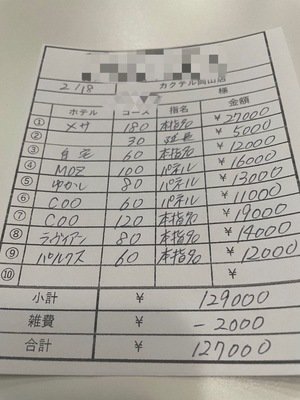 2/18 カクテル岡山店
様
ホテル コース 指名 金額
① メサ 180 本指名 ¥27000
② 30 延長 ¥5000
③ 自宅 60 本指名 ¥12000
④ MOZ 100 パネル ¥16000
⑤ ゆかし 80 パネル ¥13000
⑥ COO 60 パネル ¥11000
⑦ COO 120 本指名 ¥19000
⑧ ラヴィアン 80 本指名 ¥14000
⑨ パルクス 60 本指名 ¥12000
⑩ ¥
小計 ¥ 129000
雑費 ¥ -2000
合計 ¥ 127000